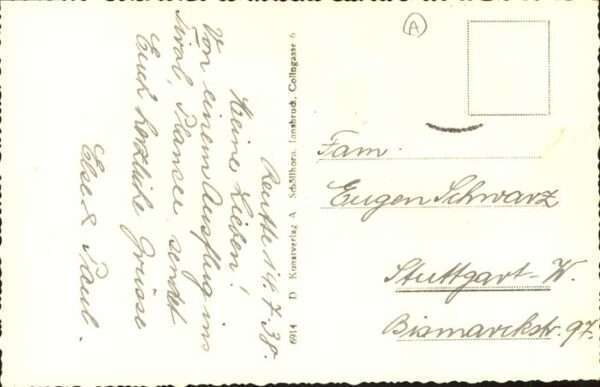 Reutte 14.7.38.
Meine Lieben!
Von einem Ausflug ins
Tirol, Plansee sendet
Euch herzliche Grüsse
Else & Paul.
6914 D Kunstverlag A Schöllhorn, Innsbruck, Collingasse 6
A
Fam.
Eugen Schwarz
Stuttgart-W.
Bismarckstr. 97.